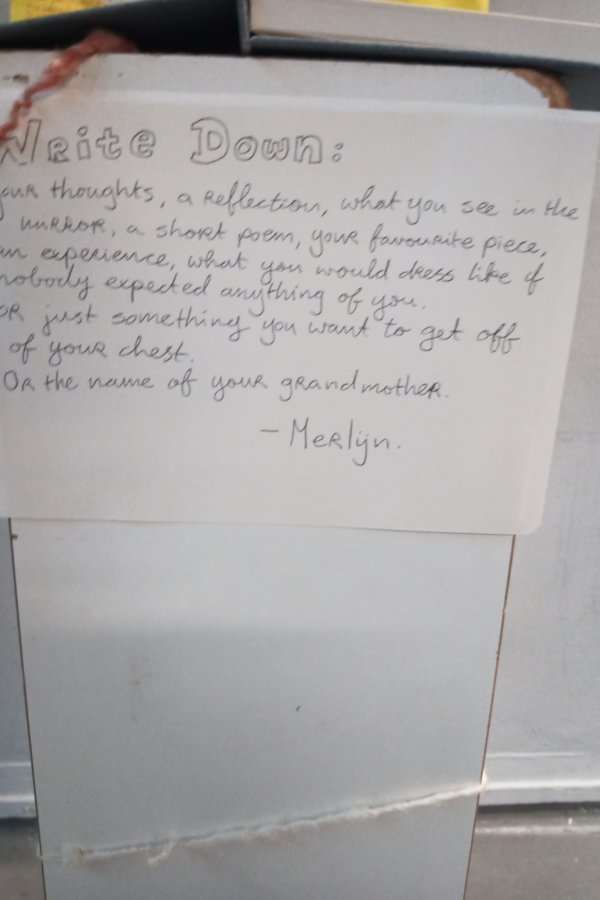 Write Down:
your thoughts, a reflection, what you see in the
mirror, a short poem, your favourite piece,
an experience, what you would dress like if
nobody expected anything of you.
or just something you want to get off
of your chest.
Or the name of your grandmother.
- Merlijn.